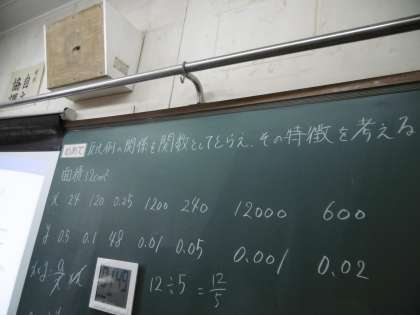 めあて 反比例の関係を関数としてとらえ、その特徴を考える
面積12cm²
x 24 120 0.25 1200 240 12000 600
y 0.5 0.1 48 0.01 0.05 0.001 0.02
12÷5 = 12/5